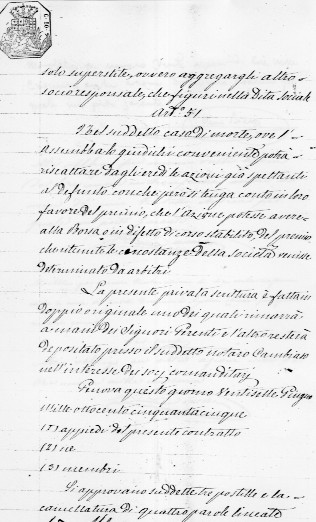 solo superstite, ovvero aggregargli altro
socio responsabile, che figuri nella Ditta Sociale
Art.° 51
Nel suddetto caso di morte, ove l'
Assemblea lo giudichi conveniente, potrà
riscattare dagli eredi le azioni già spettanti
al defunto con che però si tenga conto in loro
favore del premio, che l'Azione potesse avere
alla Borsa o in difetto di corso stabilito, del premio
che ritenute le circostanze della Società venisse
determinato da arbitri
La presente privata scrittura è fatta in
doppio originale uno dei quali rimarrà
a mani dei Signori Gerenti e l'altro resterà
depositato presso il suddetto notaro Cambiaso
nell'interesse dei socj comanditarj
Genova questo giorno Ventisette Giugno
Mille ottocento cinquantacinque
(1) appiedi del presente contratto
(2) ne
(3) membri
Si approvano suddette tre postille e la
cancellatura di quattro parole lineate